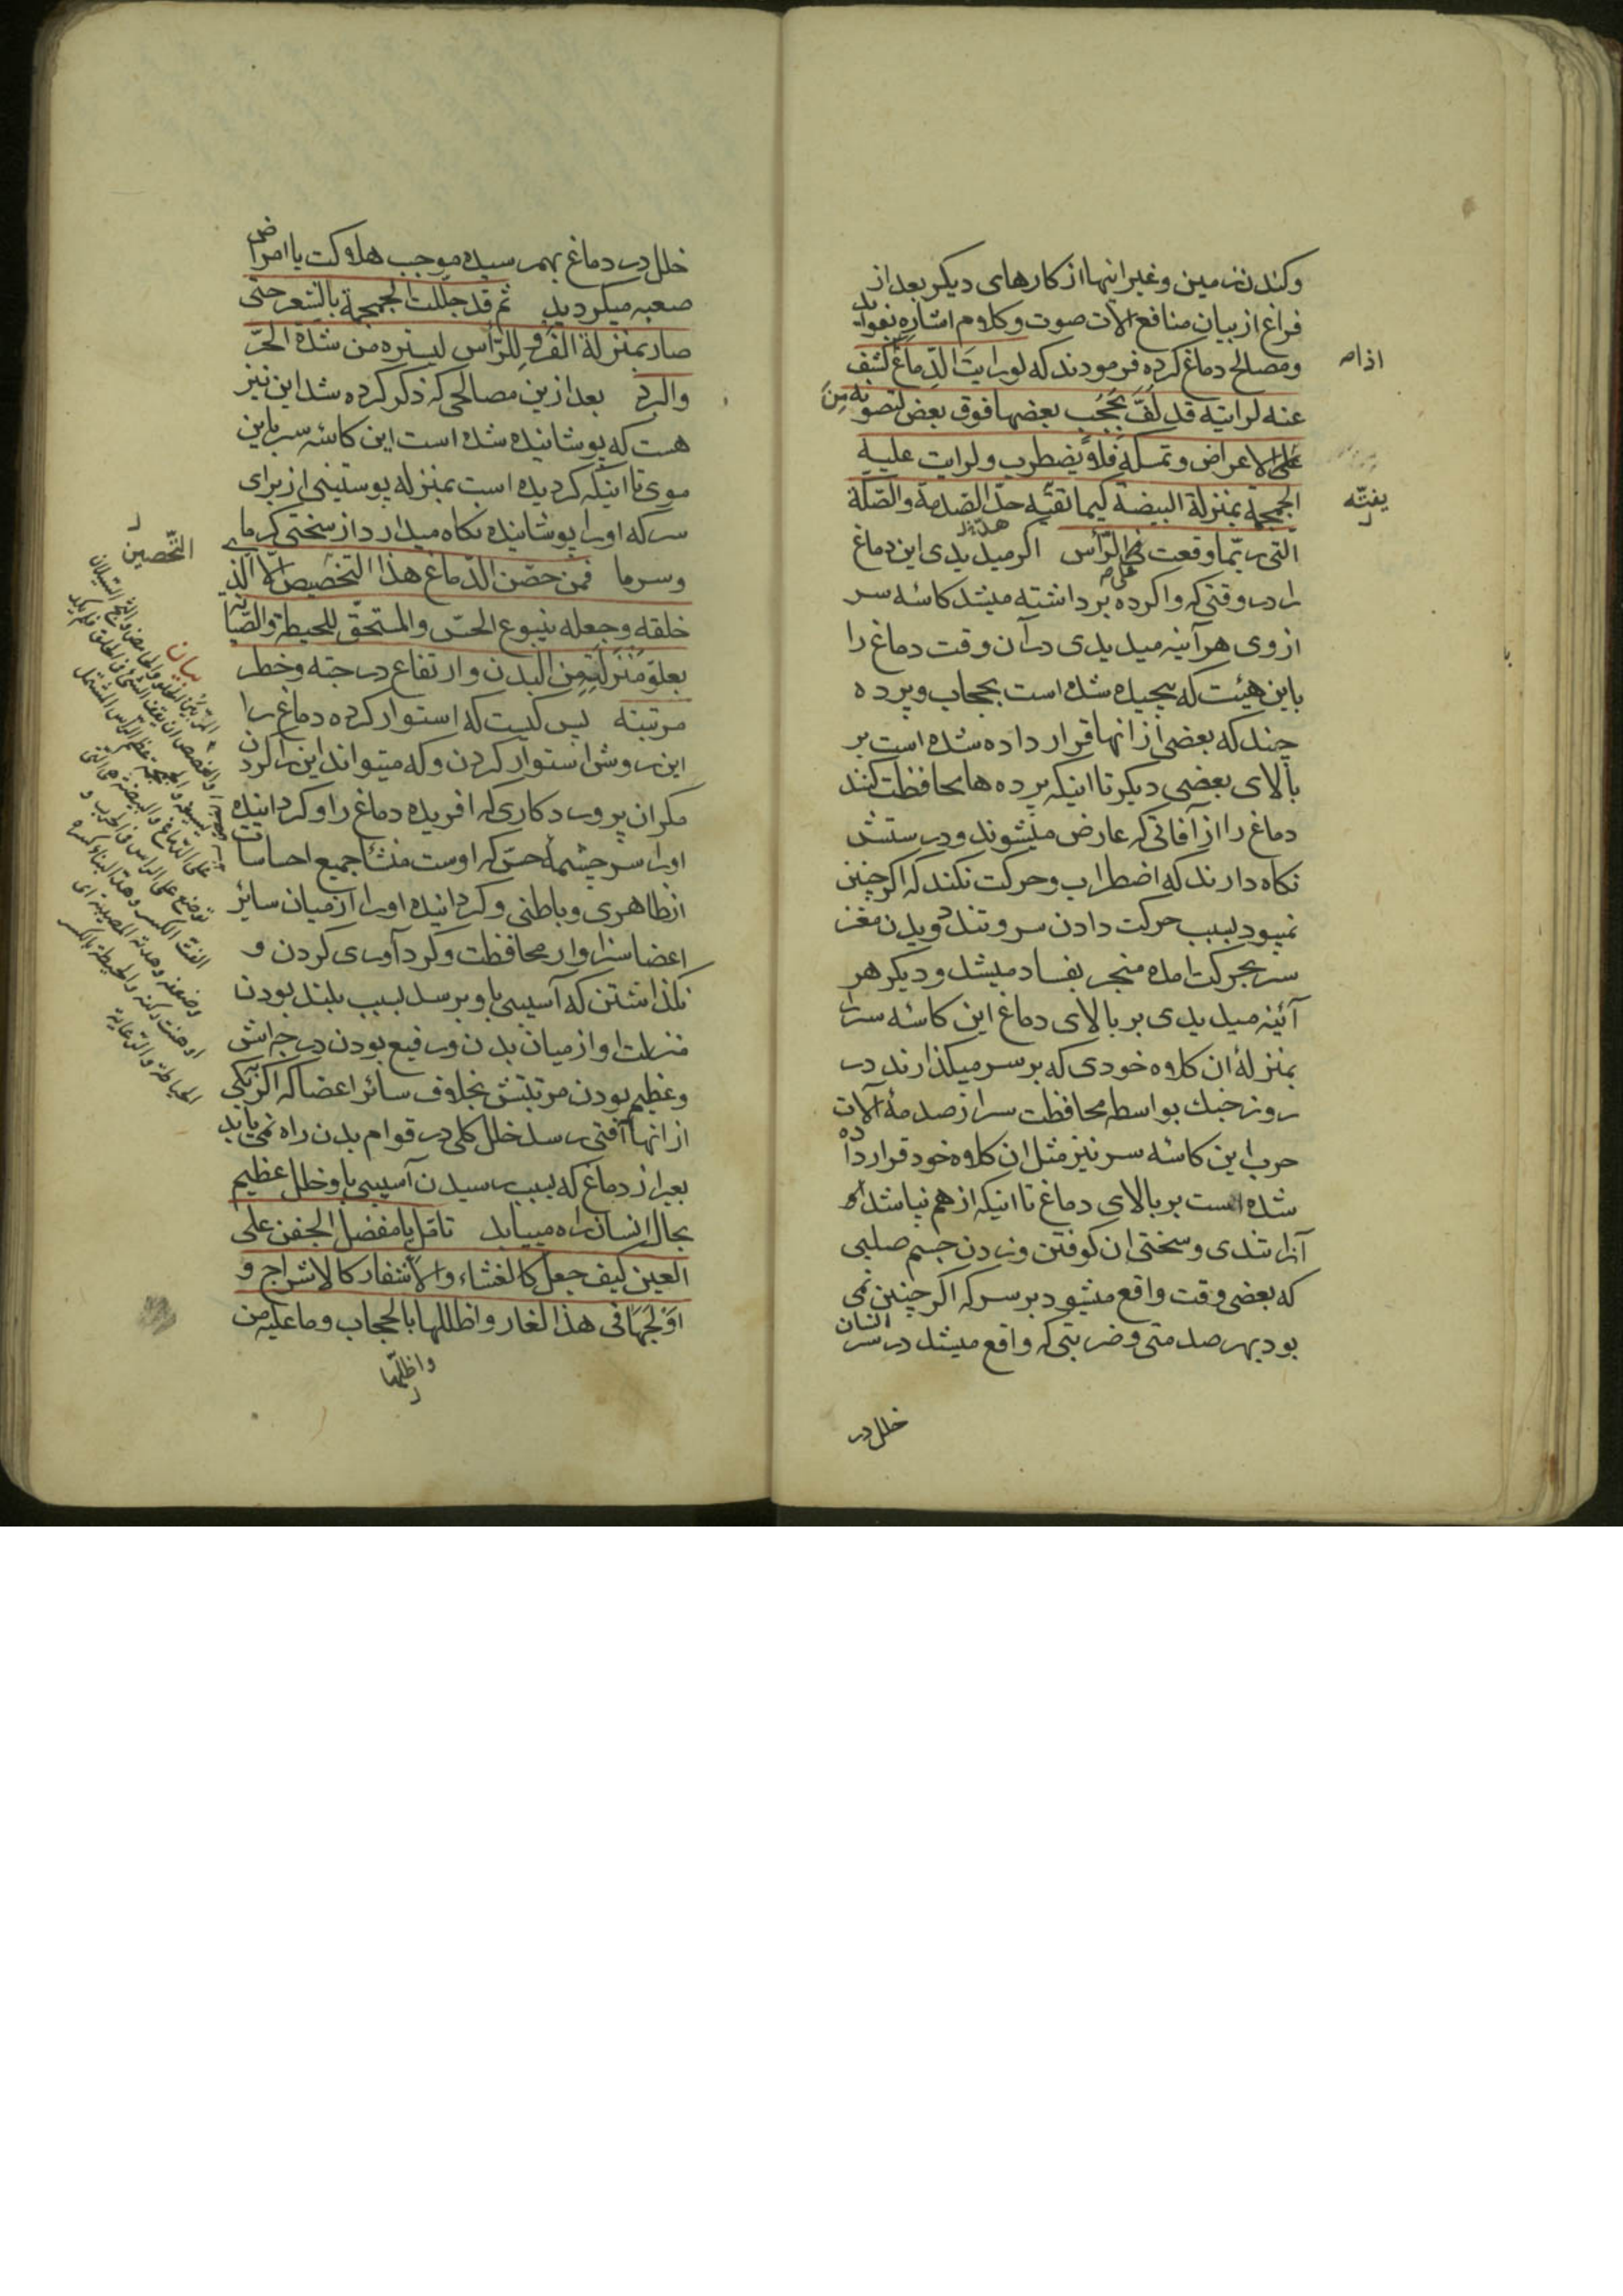 وکندن زمین وغیر اینها از کارهای دیکر بعد از
فراغ از بیان منافع الات صوت وکلام اشاره بفواید
ومصالح دماغ کرده فرمودند که لورایت الدّماغ کشف
اذا صه
عنه لرایته قد لُفَّ بحُجُب بعضها فوق بعض لتصونه مِنَ
الاعراض وتمسکه فلا یضطرب ولرایت علیه
الجمجمة بمنزلة البیضة کیما تقیه حدّ الصّدمة والصّکّة
یفتّه
التی ربّما وقعت فی الرّأس اکر میدیدی این دماغ
را در وقتی که وا کرده برداشته میشد کاسهٔ سر
از وی هر آینه میدیدی در آن وقت دماغ را
باین هیئت که پیچیده شده است بحجاب وپرده
چند که بعضی از انها قرار داده شده است بر
بالای بعضی دیکر تا اینکه پرده ها محافظت کنند
دماغ را از آفاتی که عارض میشوند ودرستش
نکاه دارند که اضطراب وحرکت نکند که اکر چنین
نمیبود بسبب حرکت دادن سر وتند دویدن مغز
سر بحرکت امده منجر بفساد میشد ودیکر هر
آئینه میدیدی بر بالای دماغ این کاسهٔ سر را
بمنزلهٔ ان کلاه خودی که بر سر میکذارند در
روز جنك بواسطه محافظت سر از صدمهٔ آلات
حرب این کاسهٔ سر نیز مثل ان کلاه خود قرار داده
شده است بر بالای دماغ تا اینکه از هم نپاشد
آنرا تندی وسختی ان کوفتن وزدن جسم صلبی
که بعضی وقت واقع میشود بر سر که اکر چنین نمی
بود بهر صدمتی وضربتی که واقع میشد در سر انسان
خلل در
خلل در دماغ بهمرسیده موجب هلاکت یا امراض
صعبه میکردید ثم قد جلّلت الجمجمة بالشعر حتی
صار بمنزلة الفَرْو لِلرّأس لیستره من شدّة الحرّ
والبرد بعد ازین مصالحی که ذکر کرده شد این نیز
هست که پوشانیده شده است این کاسه سر باین
موی تا اینکه کردیده است بمنزله پوستینی از برای
سر که اورا پوشانیده نکاه میدارد از سختی کرمای
وسرما فمن حصّن الدّماغ هذا التخصیص الا الذی
التّحصین
خلقه وجعله ینبوع الحسّ والمستحقّ للحیطة والصّیانة
بعلوّ مَنْزِلَتِهِ مِن البدن وارتفاع درجته وخطر
مرتبته پس کیست که استوار کرده دماغ را
این روش استوار کردن وکه میتواند این را کردن
مکر ان پروردکاری که افریده دماغ را وکردانیده
اورا سرچشمهٔ حسّ که اوست منشأ جمیع احساسات
از ظاهری وباطنی وکردانیده اورا از میان سائر
اعضا سزاوار محافظت وکردآوری کردن و
نکذاشتن که آسیبی باو برسد بسبب بلند بودن
منزلت او از میان بدن ورفیع بودن درجه اش
وعظیم بودن مرتبتش بخلاف سائر اعضا که اکر بیکی
از انها آفتی رسد خلل کلی در قوام بدن راه نمی یابد
بغیر از دماغ که بسبب رسیدن آسیبی باو خلل عظیم
بحال انسان راه مییابد تامّل یا مفضل الجفن علی
العین کیف جعل کالغشاء والأشفار کالاشراج و
اَوْلَجَهَا فی هذا الغار واظللها بالحجاب وما علیه من
واظلّها
بیان